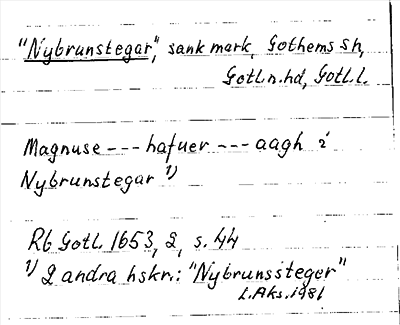 "Nybrunstegar", sank mark, Gothems sn,
Gotl.n.hd, Gotl.l.
Magnuse --- hafuer --- aagh i
Nybrunstegar 1)
Rb Gotl. 1653, 2, s. 44
1) 2 andra hskr.: "Nybrunssteger"
L.Aks. 1981